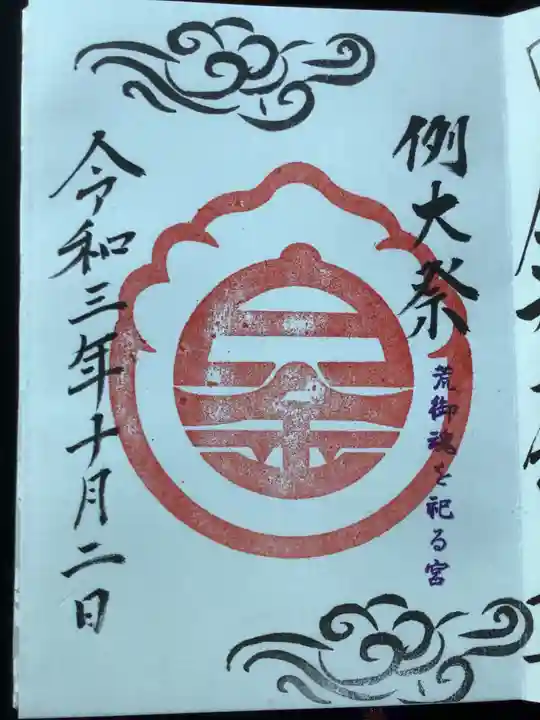 例大祭
荒御魂を祀る宮
令和三年十月二日